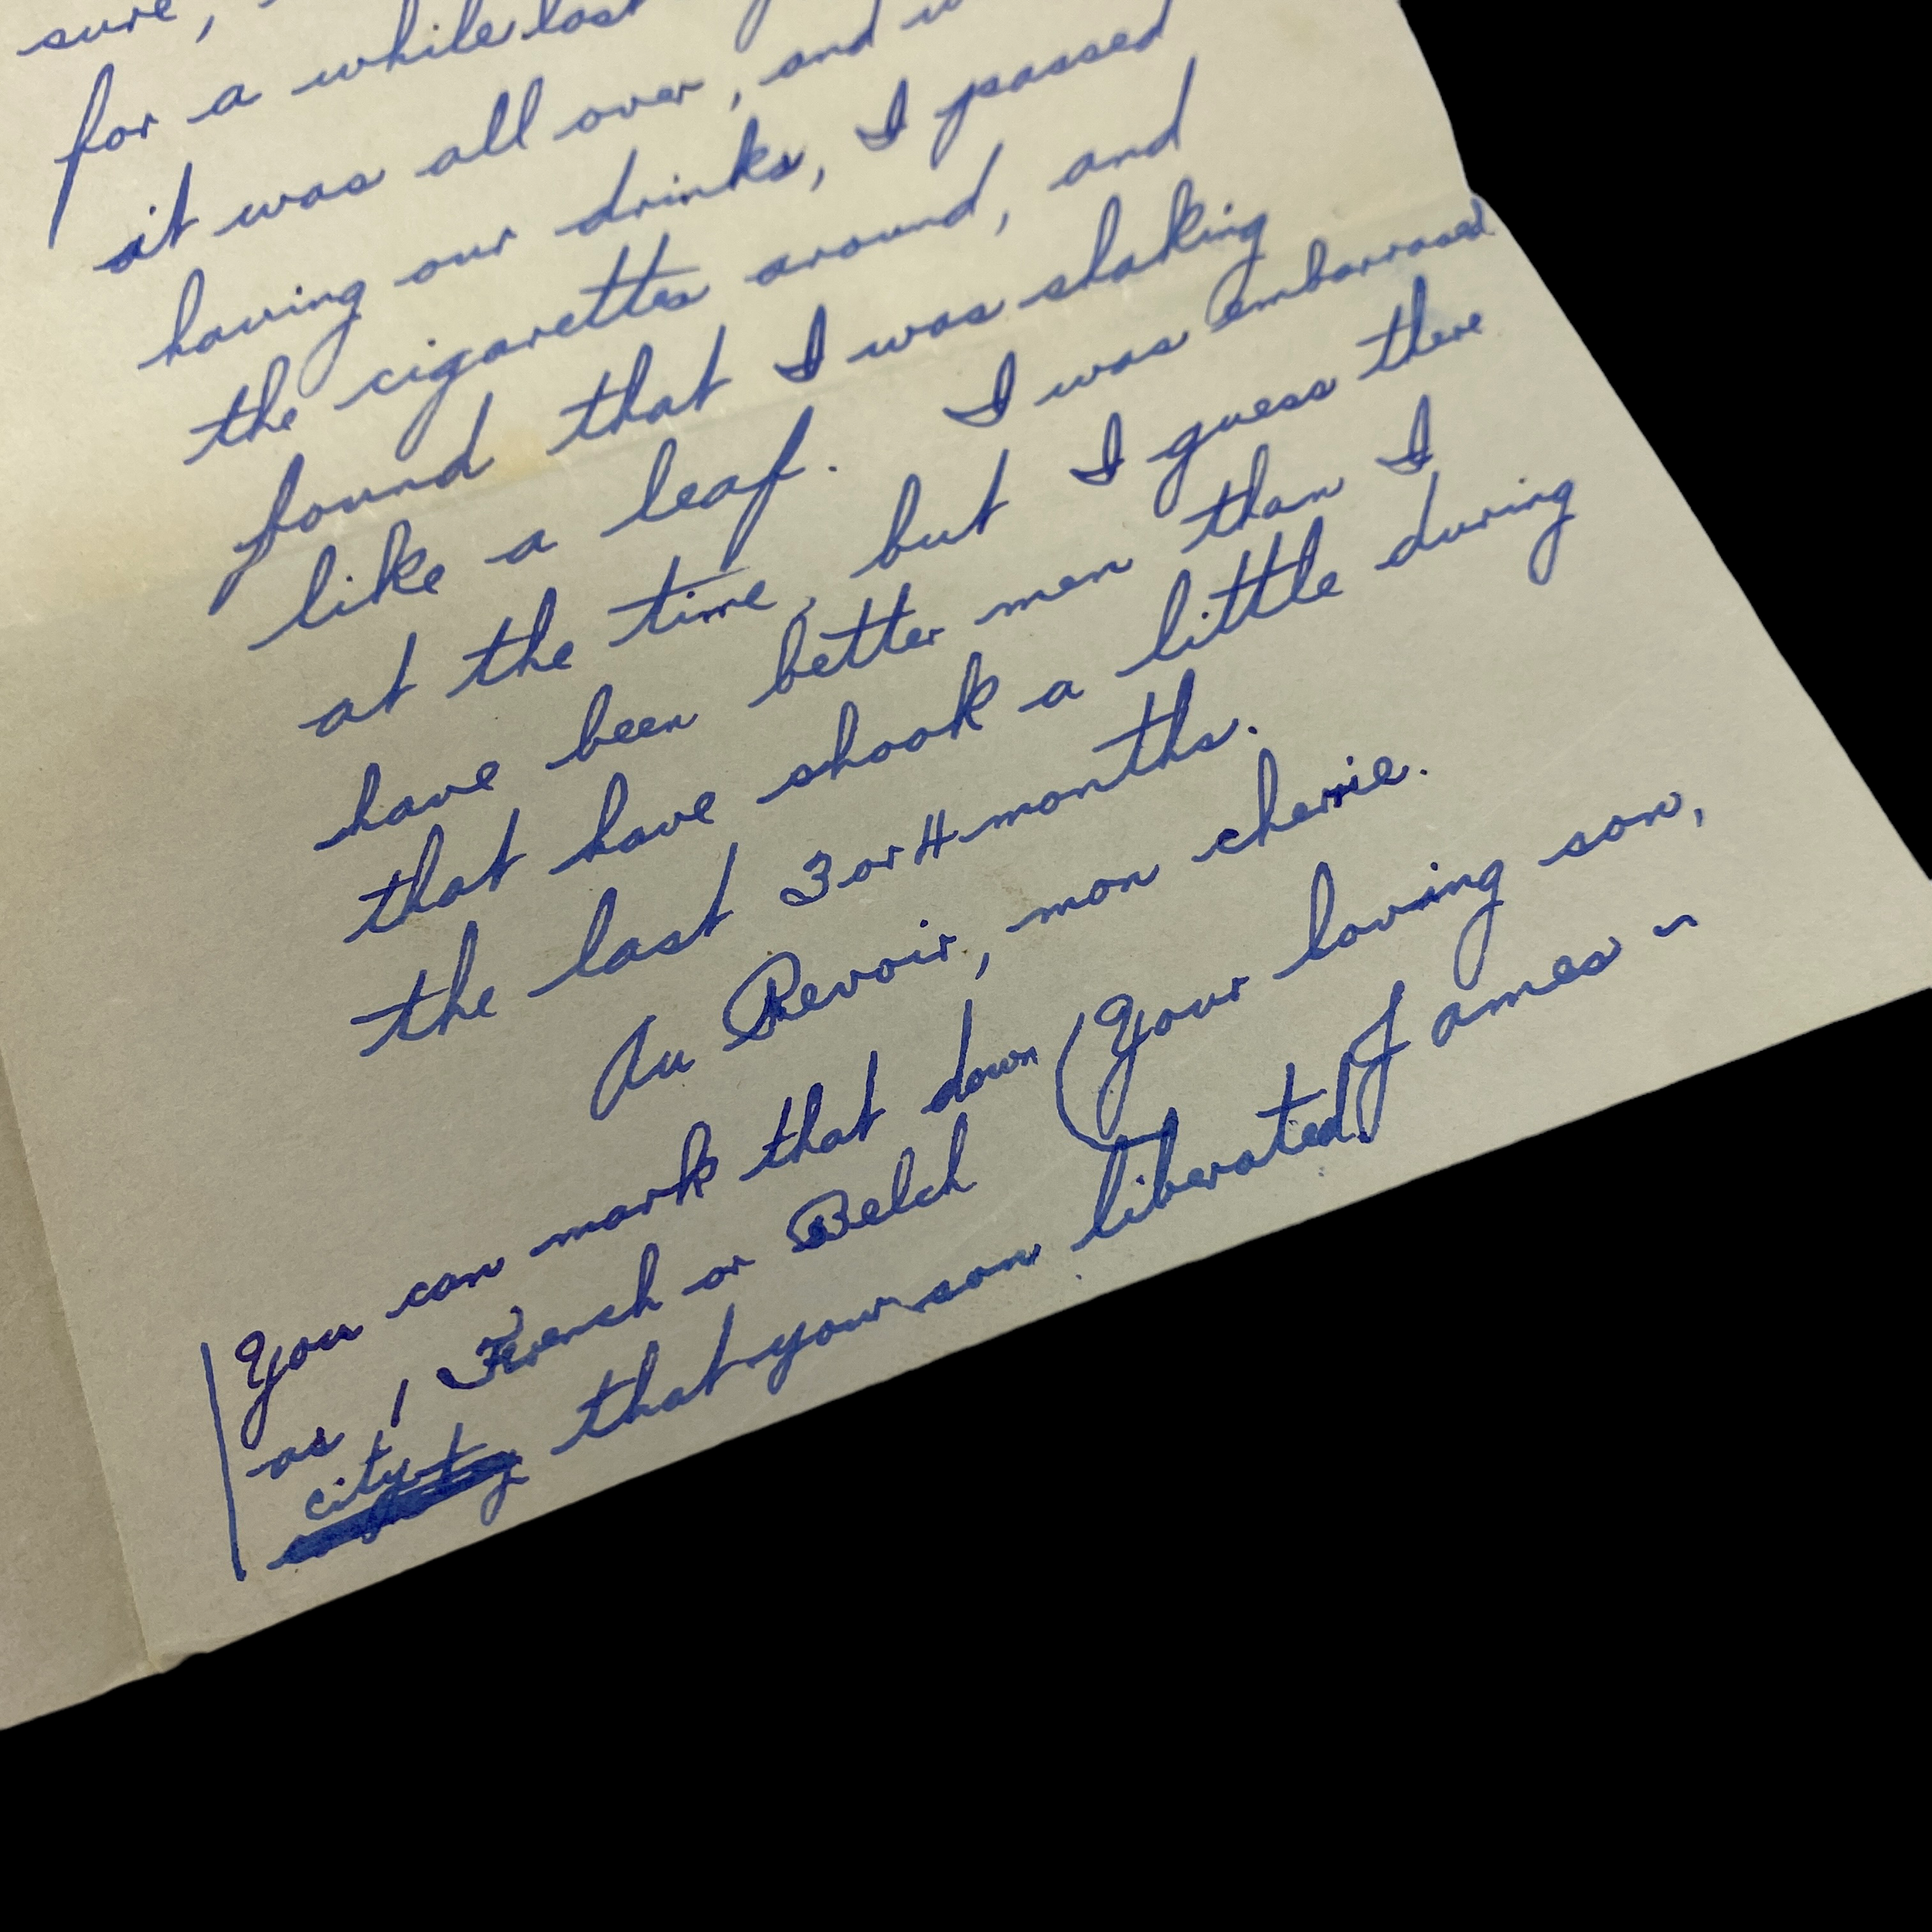 sure,
for a while last
it was all over, and
having our drinks, I passed
the cigarettes around, and
found that I was shaking
like a leaf. I was embarrased
at the time, but I guess there
have been better men than I
that have shook a little during
the last 3 or 4 months.
Au Revoir, mon cherie.
Your loving son,
James
You can mark that down
as 1 French or Belch
city
that your son liberated.